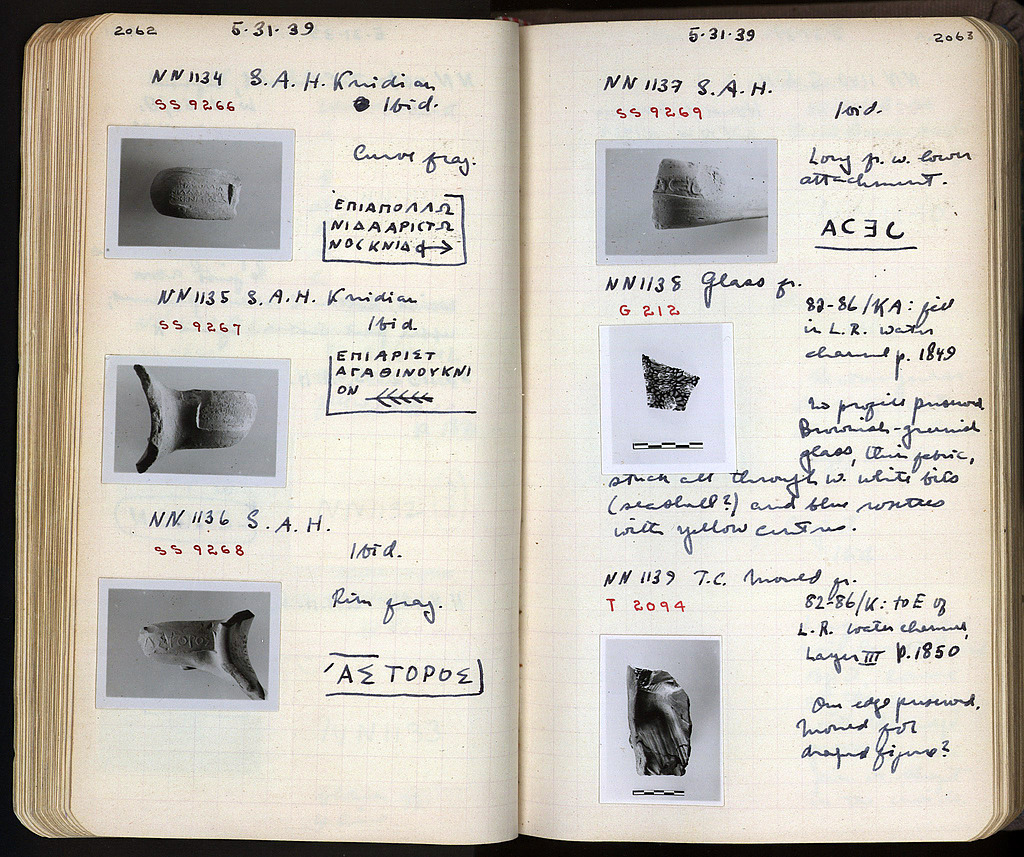 2062
5·31·39
NN 1134 S. A. H. Knidian
SS 9266
Ibid.
Curve frag.
ΕΠΙΑΠΟΛΛΩ
ΝΙΔΑΑΡΙΣΤΩ
ΝΟCΚΝΙΔ
NN 1135 S. A. H. Knidian
SS 9267
Ibid.
ΕΠΙΑΡΙΣΤ
ΑΓΑΘΙΝΟΥΚΝΙ
ΟΝ
NN 1136 S. A. H.
SS 9268
Ibid.
Rim frag.
ΆΣΤΟΡΟΣ
5·31·39
2063
NN 1137 S. A. H.
SS 9269
Ibid.
Long fr. w. lower
attachment.
ΑCƎC
NN 1138 Glass fr.
G 212
82-86/KA: fill
in L.R. water
channel p. 1849
No profile preserved
Brownish-greenish
glass, thin fabric,
stuck all through w. white bits
(seashell?) and blue rosettes
with yellow centres.
NN 1139 T.C. Mould fr.
T 2094
82-86/K: to E of
L.R. water channel,
Layer III p. 1850
One edge preserved.
Mould for
draped figure?